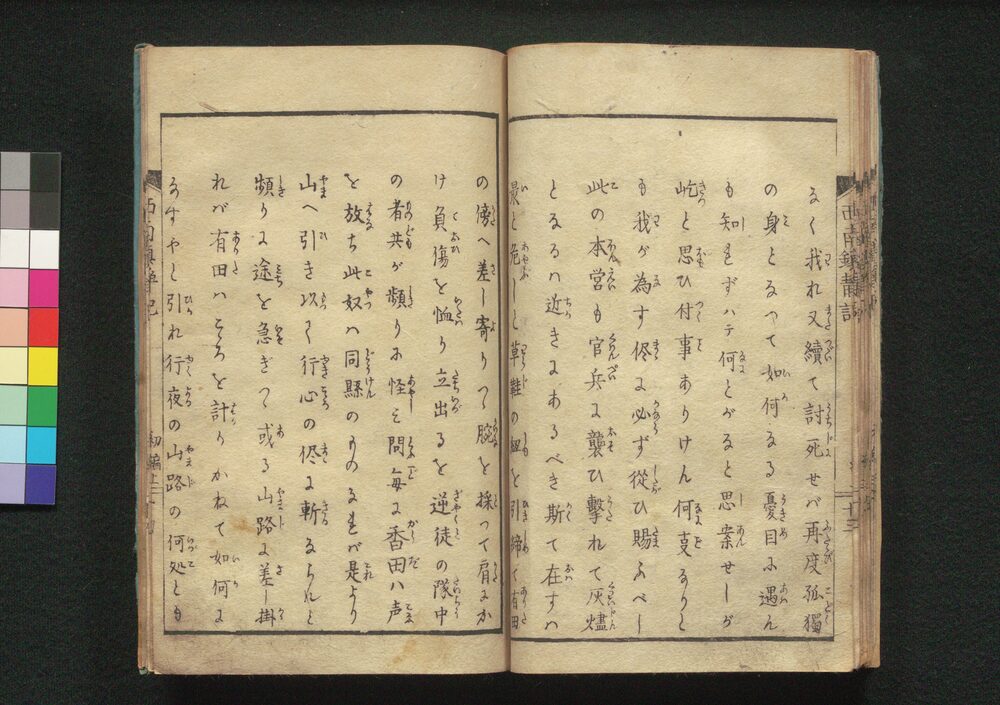 なく我れ又續て討死せバ再度孤獨
の身となつて如何なる憂目に遇ん
も知れずハテ何とがなと思案せしが
屹と思ひ付事ありけん何事なりと
も我が為す侭に必ず從ひ賜ふべし
此の本営も官兵に襲ひ撃れて灰燼
となるハ近きにあるべき斯て在すハ
最と危しと草鞋の紐を引締て有田
の傍へ差し寄りつゝ腕を採つて肩にか
け負傷を恤り立出るを逆徒の隊中
の者共が頻りに怪み問毎に香田ハ声
を放ち此奴ハ同縣のものなれバ是より
山へ引き以て行心の侭に斬るられと
頻りに途を急ぎつゝ或る山路に差し掛
れバ有田ハこゝろを計りかねて如何に
なすやと引れ行夜の山路の何処とも
西南鎮静記
初編上